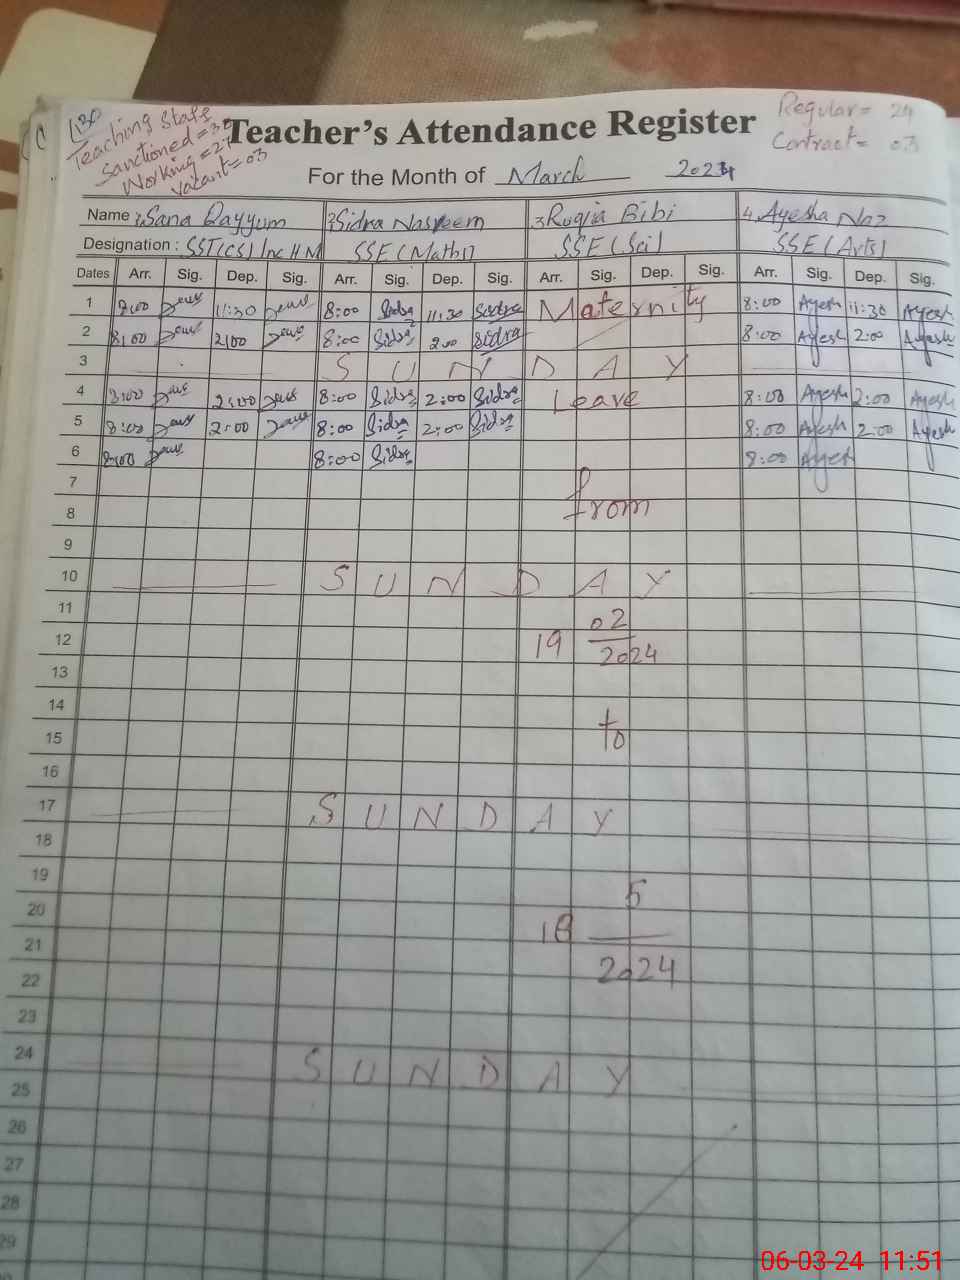 1/30
Teaching Staff
Sanctioned = 30
Working = 27
Vacant = 03
Teacher's Attendance Register
Regular = 24
Contract = 03
For the Month of March 2024
Name 1. Sana Qayyum 2. Sidra Nasreem 3. Ruqia Bibi 4. Ayesha Naz
Designation : SST(CS) Inc H M SSE (Math) SSE (Sci) SSE (Arts)
Dates Arr. Sig. Dep. Sig. Arr. Sig. Dep. Sig. Arr. Sig. Dep. Sig. Arr. Sig. Dep. Sig.
1 8:00 11:30 8:00 Sidra 11:30 Sidra Maternity 8:00 Ayesh 11:30 Ayesh
2 8:00 2:00 8:00 Sidra 2:00 Sidra 8:00 Ayesh 2:00 Ayesh
3 S U N D A Y
4 8:00 2:00 8:00 Sidra 2:00 Sidra Leave 8:00 Ayesh 2:00 Ayesh
5 8:00 2:00 8:00 Sidra 2:00 Sidra 8:00 Ayesh 2:00 Ayesh
6 8:00 8:00 Sidra 8:00 Ayesh
7
8 from
9
10 S U N D A Y
11 02
12 19 2024
13
14
15 to
16
17 S U N D A Y
18
19 5
20
21 18
22 2024
23
24 S U N D A Y
25
26
27
28
29
06-03-24 11:51